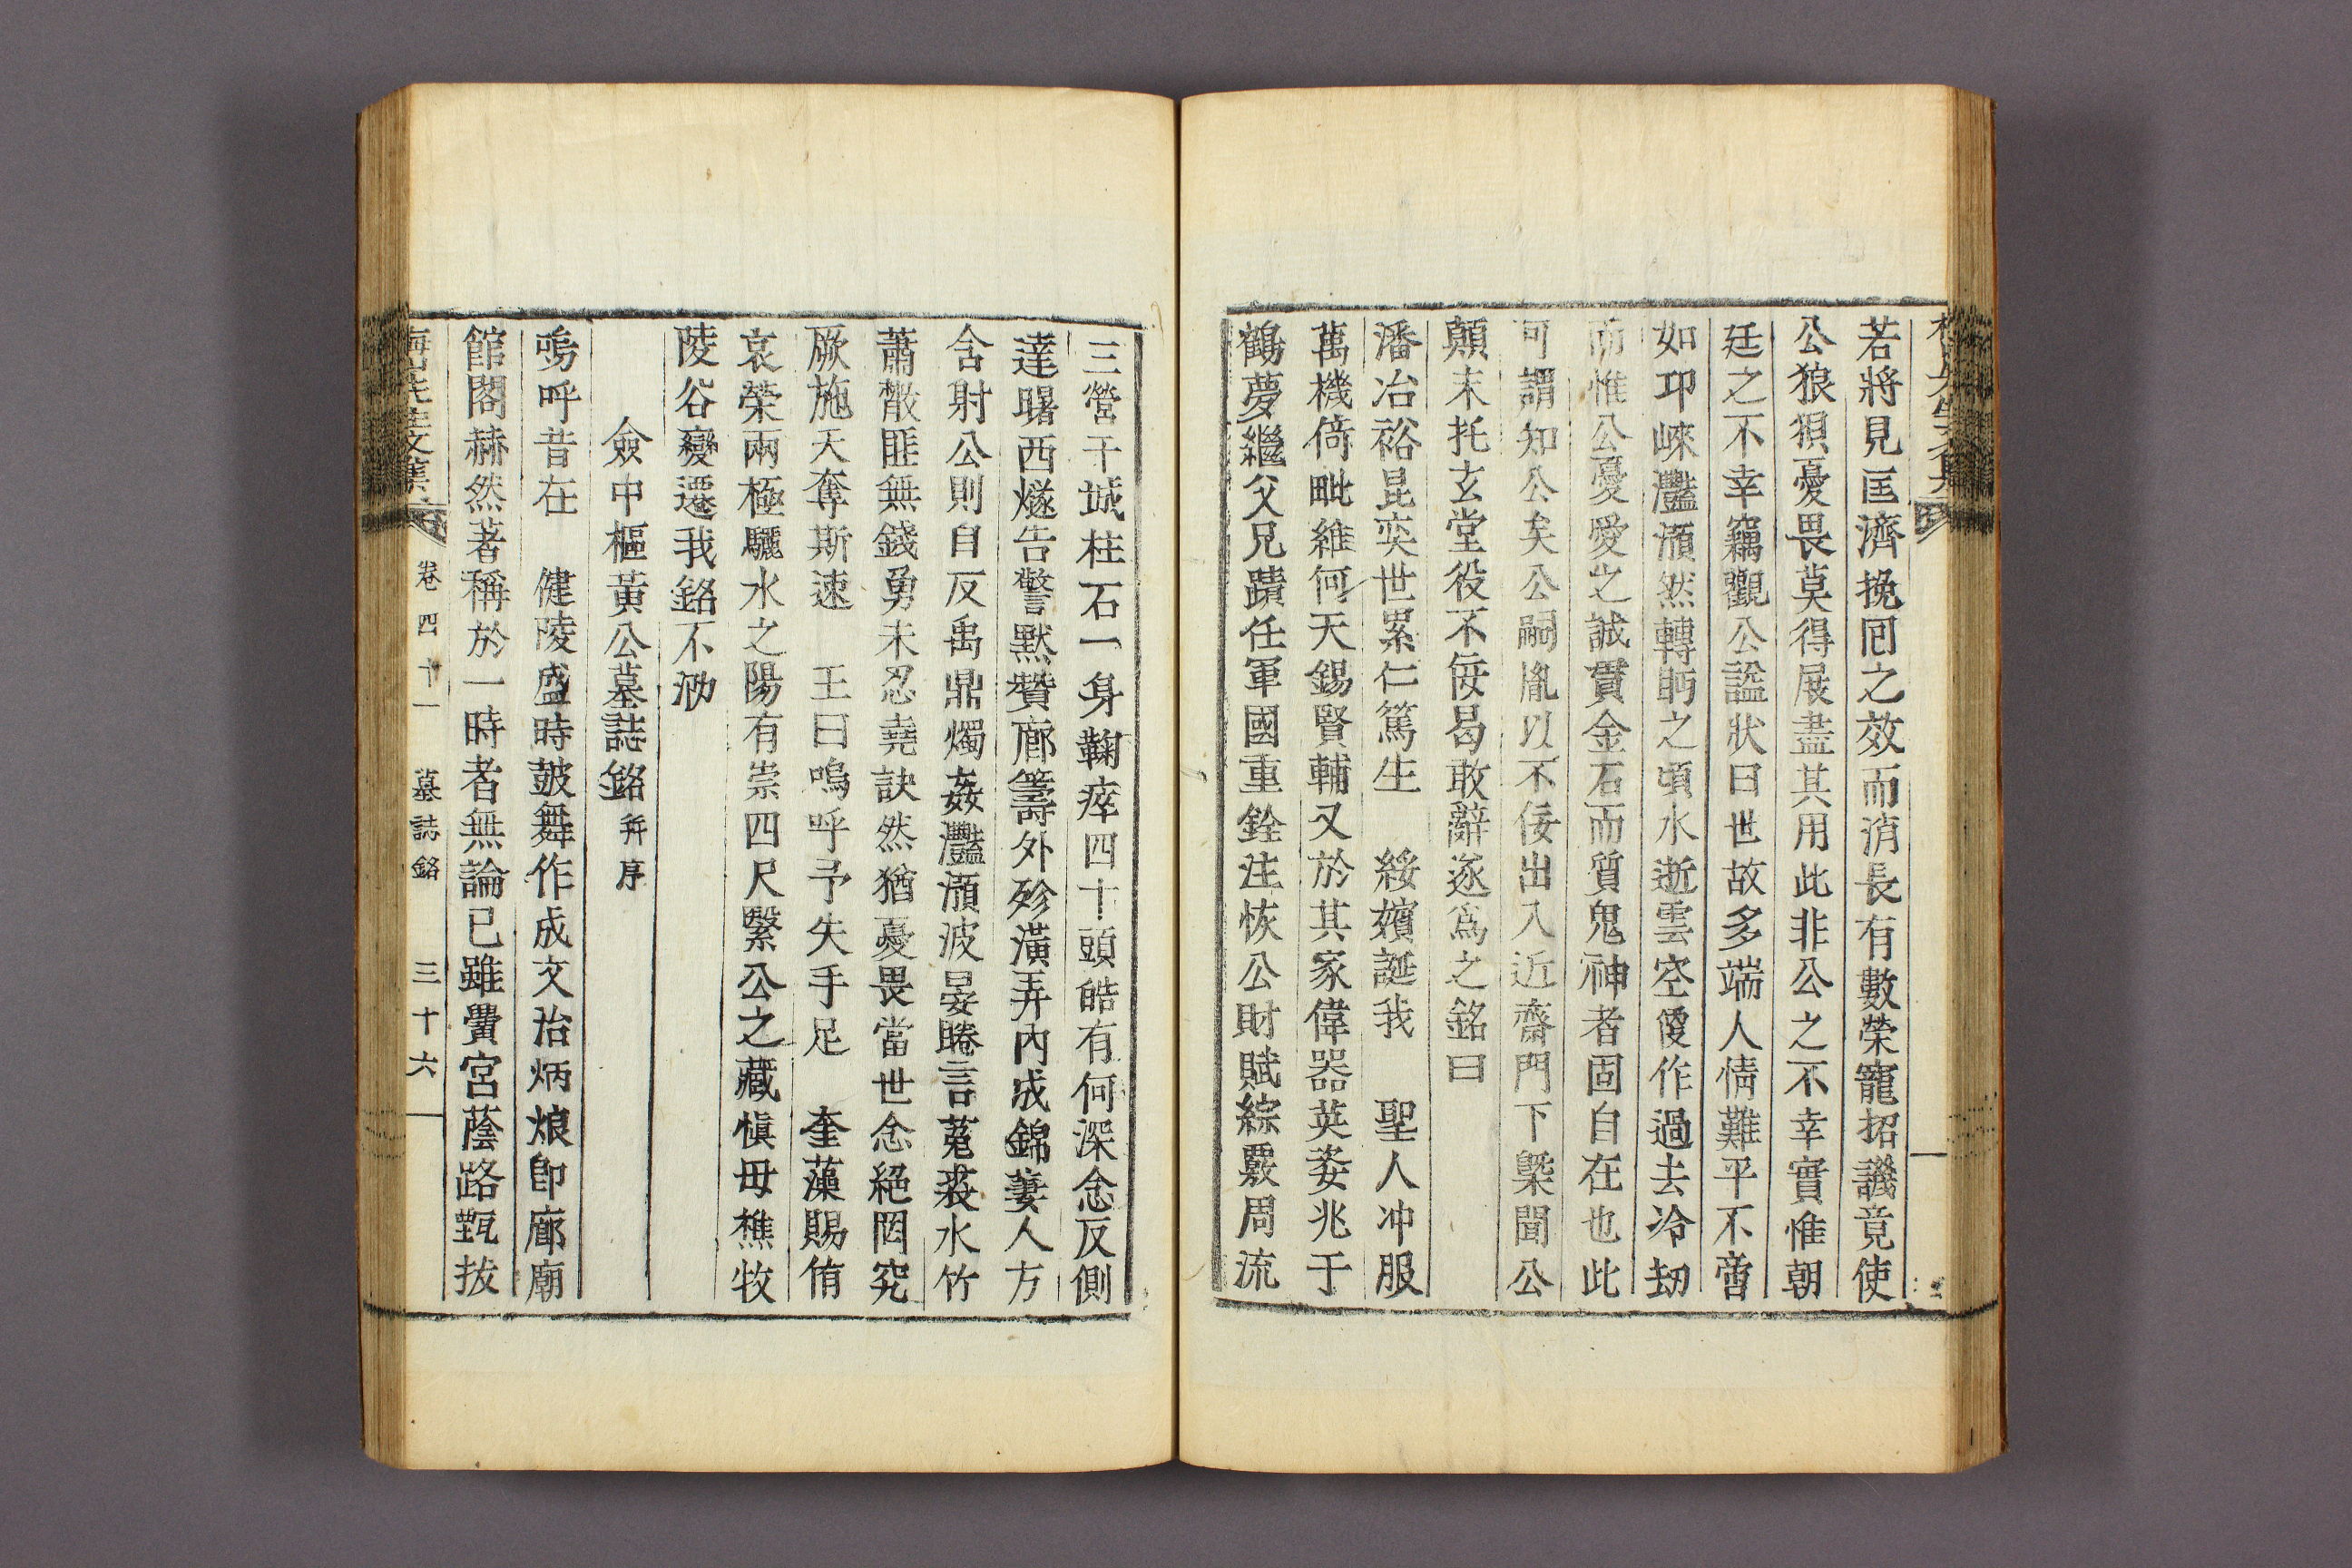 若將見匡濟挽囘之效而消長有數榮寵招譏竟使
公狼狽憂畏莫得展盡其用此非公之不幸實惟朝
廷之不幸竊觀公諡狀曰世故多端人情難平不啻
如卭崍灩澦然轉眄之頃水逝雲空便作過去冷刼
而惟公憂愛之誠貫金石而質鬼神者固自在也此
可謂知公矣公嗣胤以不佞出入近齋門下槩聞公
顛末托玄堂役不佞曷敢辭遂爲之銘曰
潘冶裕昆奕世累仁篤生 綏嬪誕我 聖人冲服
萬機倚毗維何天錫賢輔又於其家偉器英姿兆于
鶴夢繼父兄蹟任軍國重銓注恢公財賦綜覈周流
三營干城柱石一身鞠瘁四十頭皓有何深念反側
達曙西燧告警默贊廊籌外殄潢弄內成錦萋人方
含射公則自反禹鼎燭姦灩澦波晏睠言菟裘水竹
蕭散匪無錢勇未忍堯訣然猶憂畏當世念絕罔究
厥施天奪斯速 王曰嗚呼予失手足 奎藻賜侑
哀榮兩極驪水之陽有崇四尺繄公之藏愼毋樵牧
陵谷變遷我銘不泐
僉中樞黃公墓誌銘 幷序
嗚呼昔在 健陵盛時鼓舞作成文治炳烺卽廊廟
館閣赫然著稱於一時者無論已雖黌宮蔭路甄拔
梅山先生文集 卷四十一 墓誌銘 三十六